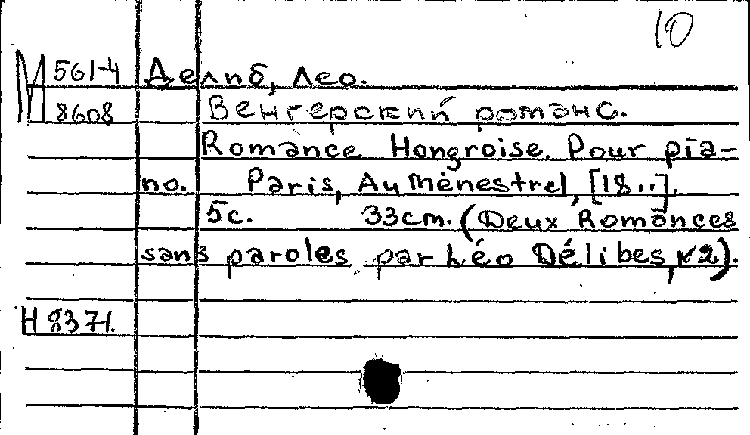 10
М 561-4 Делиб, Лео.
8608 Венгерский романс.
Romance Hongroise. Pour pia-
no. Paris, Au Ménestrel, [18..].
5c. 33cm. (Deux Romances
sans paroles par Léo Délibes, №2).
Н 8371.